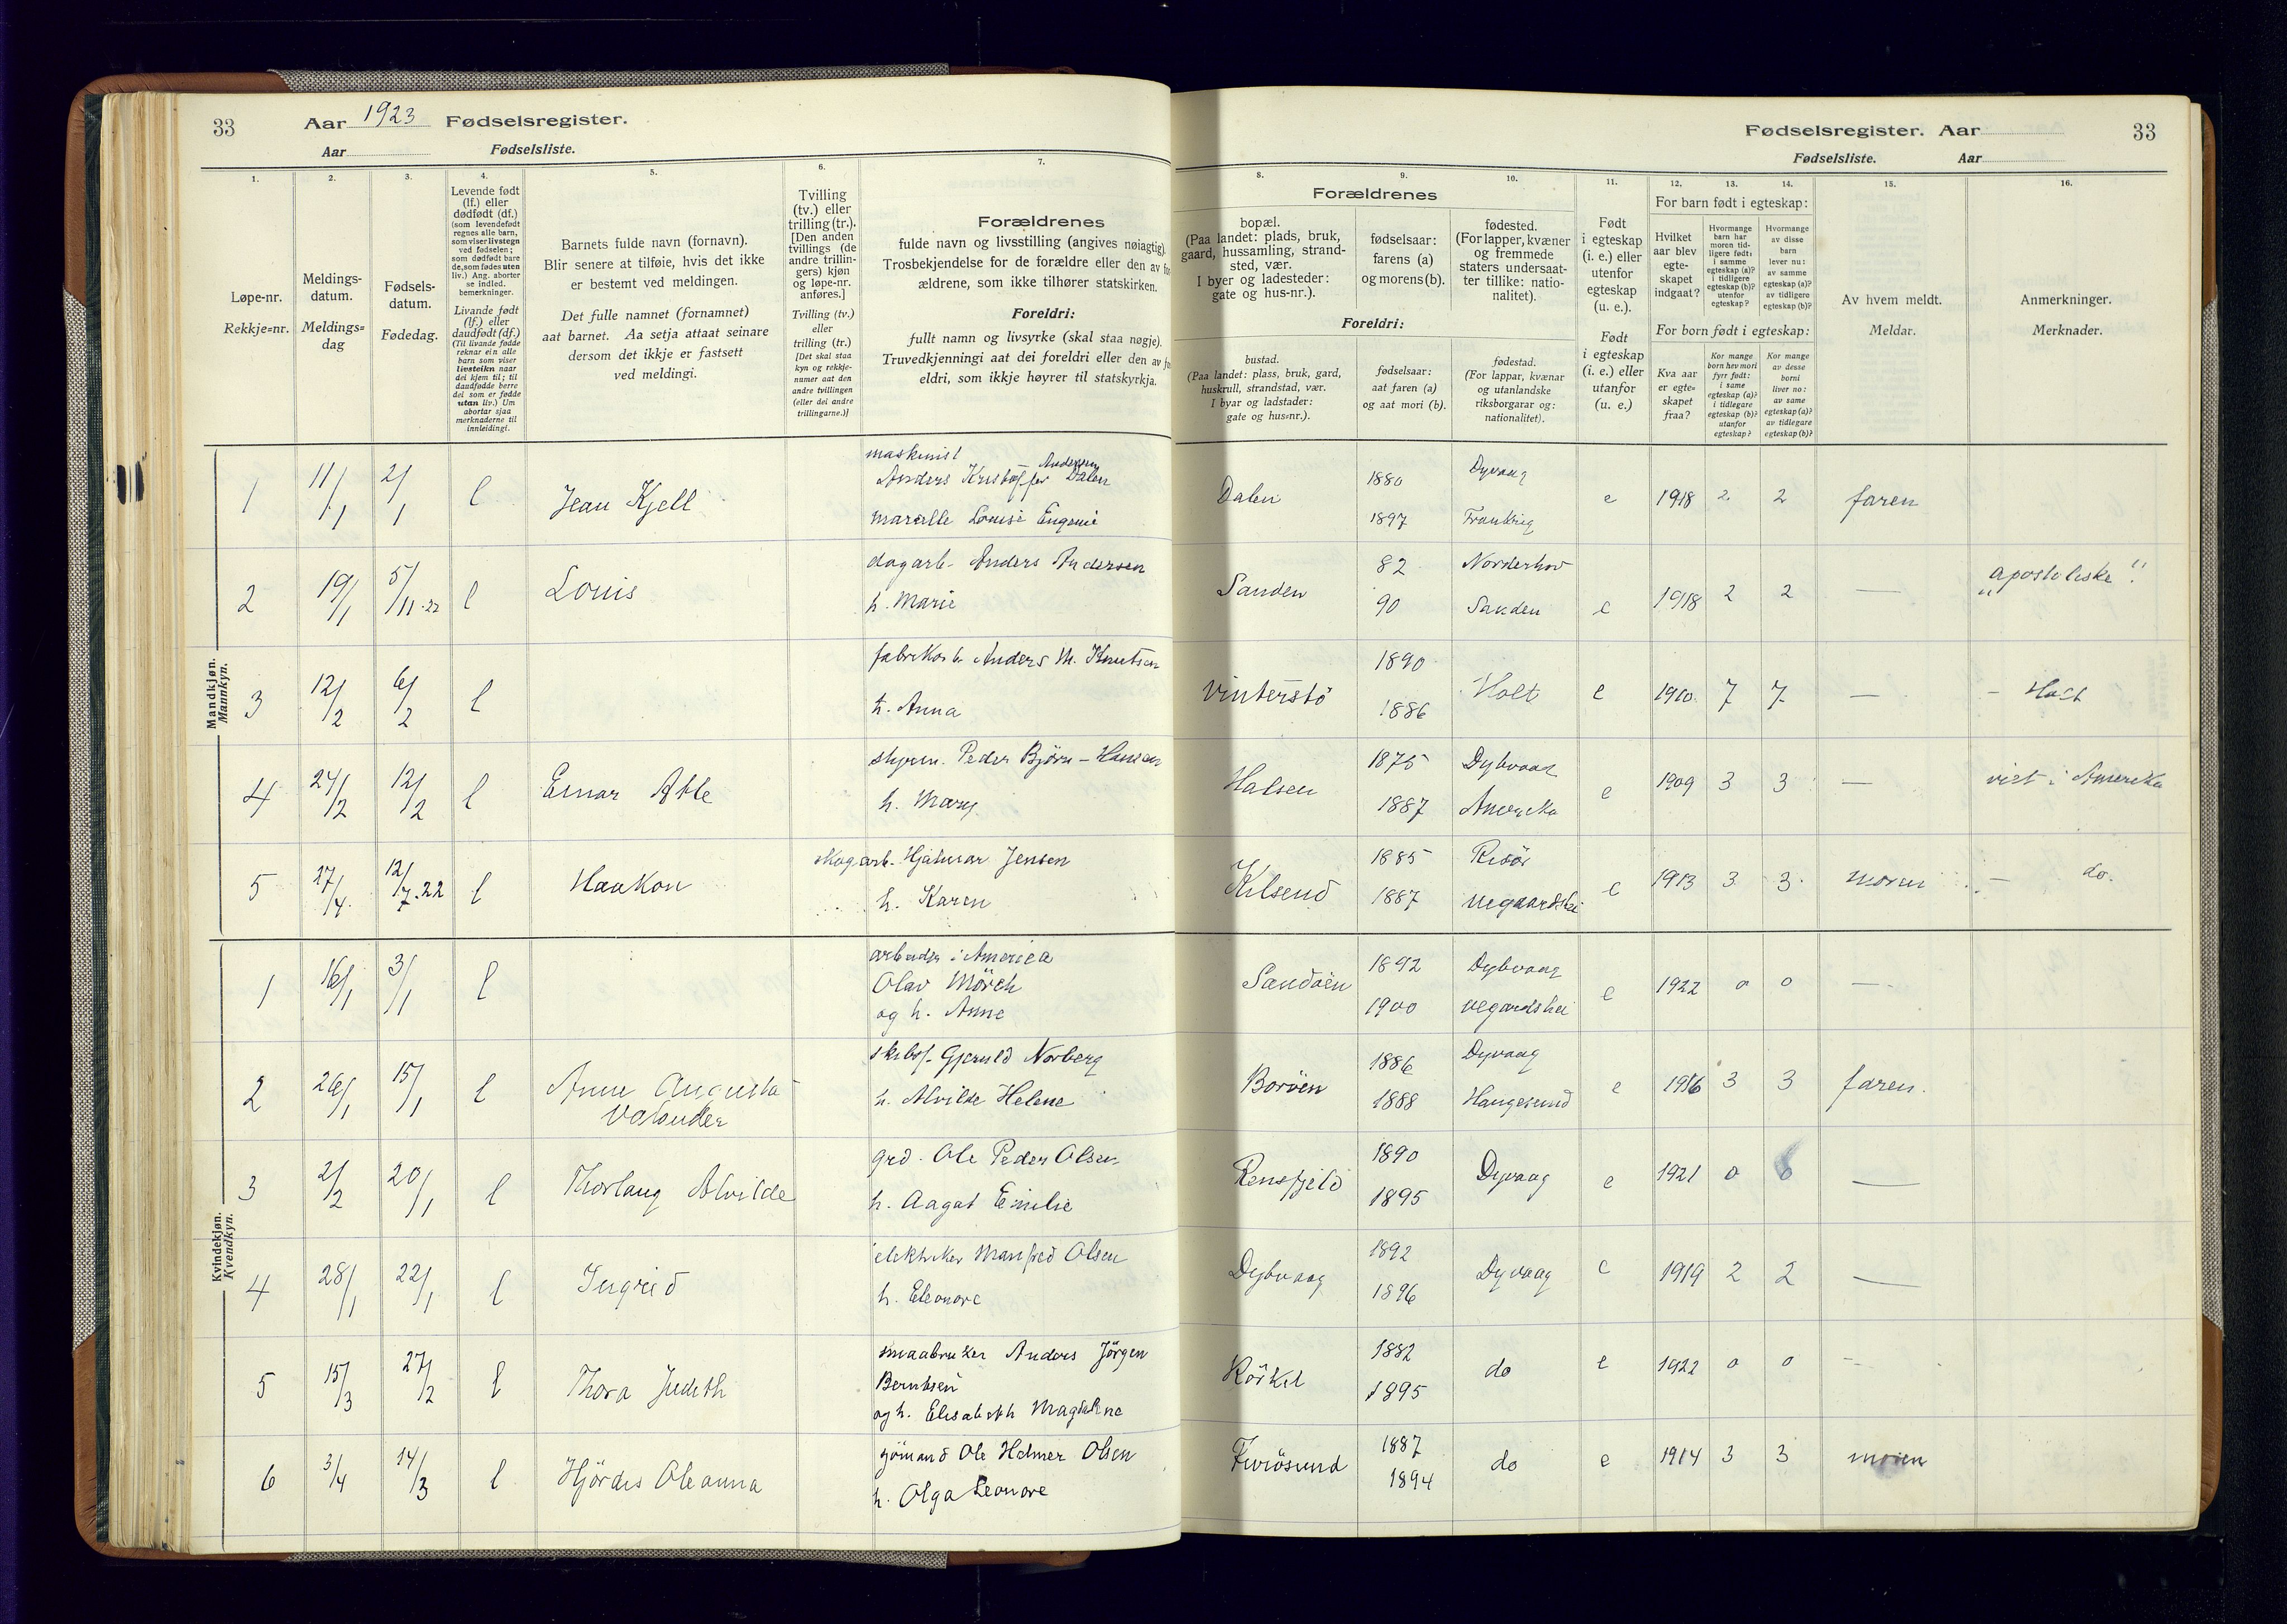 33 Aar 1923 Fødselsregister.
Aar Fødselsliste.
1. 2. 3. 4. 5. 6. 7.
Løpe-nr.
Rekkje=nr.
Meldings-
datum.
Meldings=
dag
Fødsels-
datum.
Fødedag.
Levende født
(lf.) eller
dødfødt (df.)
(som levendefødt
regnes alle barn,
som viser livstegn
ved fødselen;
som dødfødt bare
de, som fødes uten
liv.) Ang. aborter
se indled.
bemerkninger.
Livande født
(lf.) eller
daudfødt (df.)
(Til livande fødde
reknar ein alle
barn som viser
livsteikn naar
dei kjem til; til
daudfødde berre
dei som er fødde
utan liv.) Um
abortar sjaa
merknaderne til
innleidingi.
Barnets fulde navn (fornavn).
Blir senere at tilføie, hvis det ikke
er bestemt ved meldingen.
Det fulle namnet (fornamnet)
aat barnet. Aa setja attaat seinare
dersom det ikkje er fastsett
ved meldingi.
Tvilling
(tv.) eller
trilling (tr.).
[Den anden
tvillings (de
andre trillin-
gers) kjøn
og løpe-nr.
anføres.]
Tvilling (tv.)
eller
trilling (tr.)
[Det skal staa
kyn og rekkje-
numer aat den
andre tvillingen
(eller dei andre
trillingarne.)]
Forældrenes
fulde navn og livsstilling (angives nøiagtig).
Trosbekjendelse for de forældre eller den av for
ældrene, som ikke tilhører statskirken.
Foreldri:
fullt namn og livsyrke (skal staa nøgje).
Truvedkjenningi aat dei foreldri eller den av fo
eldri, som ikkje høyrer til statskyrkja.
Mandkjøn.
Mannkyn.
1 11/1 2/1 l Jean Kjell
maskinist
Andersen
Anders Kristoffer Dalen
Marcelle Louise Eugenie
2 19/1 5/11.22 l Louis
dagarb. Anders Andersen
h. Marie
3 12/2 6/2 l
fabrikarb. Anders M. Knutsen
h. Anna
4 24/2 12/2 l Einar Atle
styrm. Peder Bjørn-Hansen
h. Mary
5 27/4 12/7.22 l Haakon
skogarb. Hjalmar Jensen
h. Karen
Kvindekjøn.
Kvendkyn.
1 16/1 3/1 l
arbeider i America
Olav Mörch
og h. Anne
2 26/1 15/1 l Anne Augusta
skibsf. Gjeruld Norberg
h. Alvilde Helene
3 2/2 20/1 l Thorlaug Alvilde
grd. Ole Peder Olsen
h. Aagot Emilie
4 28/1 22/1 l Ingrid
elektriker Manfred Olsen
h. Eleonore
5 15/3 27/2 l Thora Judith
smaabruker Anders Jörgen
Berntsen
og h. Elisabeth Magdalene
6 3/4 14/3 l Hjördis Oleanna
sjömand Ole Helmer Olsen
h. Olga Leonore
Fødselsregister. Aar 33
Fødselsliste. Aar
8. 9. 10. 11. 12. 13. 14. 15. 16.
Forældrenes
bopæl.
(Paa landet: plads, bruk,
gaard, hussamling, strand-
sted, vær.
I byer og ladesteder:
gate og hus-nr.).
Foreldri:
bustad.
(Paa landet: plass, bruk, gard,
huskrull, strandstad, vær.
I byar og ladstader:
gate og hus=nr.).
fødselsaar:
farens (a)
og morens (b).
fødselsaar:
aat faren (a)
og aat mori (b).
fødested.
(For lapper, kvæner
og fremmede
staters undersaat-
ter tillike: natio-
nalitet).
fødestad.
(For lappar, kvænar
og utanlandske
riksborgarar og:
nationalitet).
Født
i egteskap
(i. e.) eller
utenfor
egteskap
(u. e.).
Født
i egteskap
(i. e.) eller
utanfor
(u. e.)
For barn født i egteskap:
Hvilket
aar blev
egte-
skapet
indgaat?
Hvormange
barn har
moren tid-
ligere født:
i samme
egteskap (a)?
i tidligere
egteskap (b)?
utenfor
egteskap?
Hvormange
av disse
barn
lever nu:
av samme
egteskap (a)?
av tidligere
egteskap (b)?
For born født i egteskap:
Kva aar
er egte=
skapet
fraa?
Kor mange
born hev mori
fyrr født:
i same
egteskap (a)?
i tidlegare
egteskap (b)?
utanfor
egteskap?
Kor mange
av desse
borni
liver no:
av same
egteskap (a)?
av tidlegare
egteskap (b)?
Av hvem meldt.
Meldar.
Anmerkninger.
Merknader.
Dalen 1880 Dyvaag
1897 Frankrig e 1918 2 2 faren
Sanden 82 Norderhov
90 Sanden e 1918 2 2 — „apostoliske".
Vinterstö 1890
1886 Holt e 1910 7 7 — - Holt
Halsen 1875 Dybvaag
1887 Amerika e 1909 3 3 — viet i Amerika
Kilsund 1885 Risör
1887 Vegaardshei e 1913 3 3 moren — do.
Sandöen 1892 Dybvaag
1900 Vegardshei e 1922 0 0 —
Boröen 1886 Dyvaag
1888 Haugesund e 1916 3 3 faren.
Rensfjeld 1890
1895 Dyvaag e 1921 0 0 —
Dybvaag 1892
1896 Dyvaag e 1919 2 2 —
1882
1895 do e 1922 0 0 —
Furösund 1887
1894 do e 1914 3 3 moren